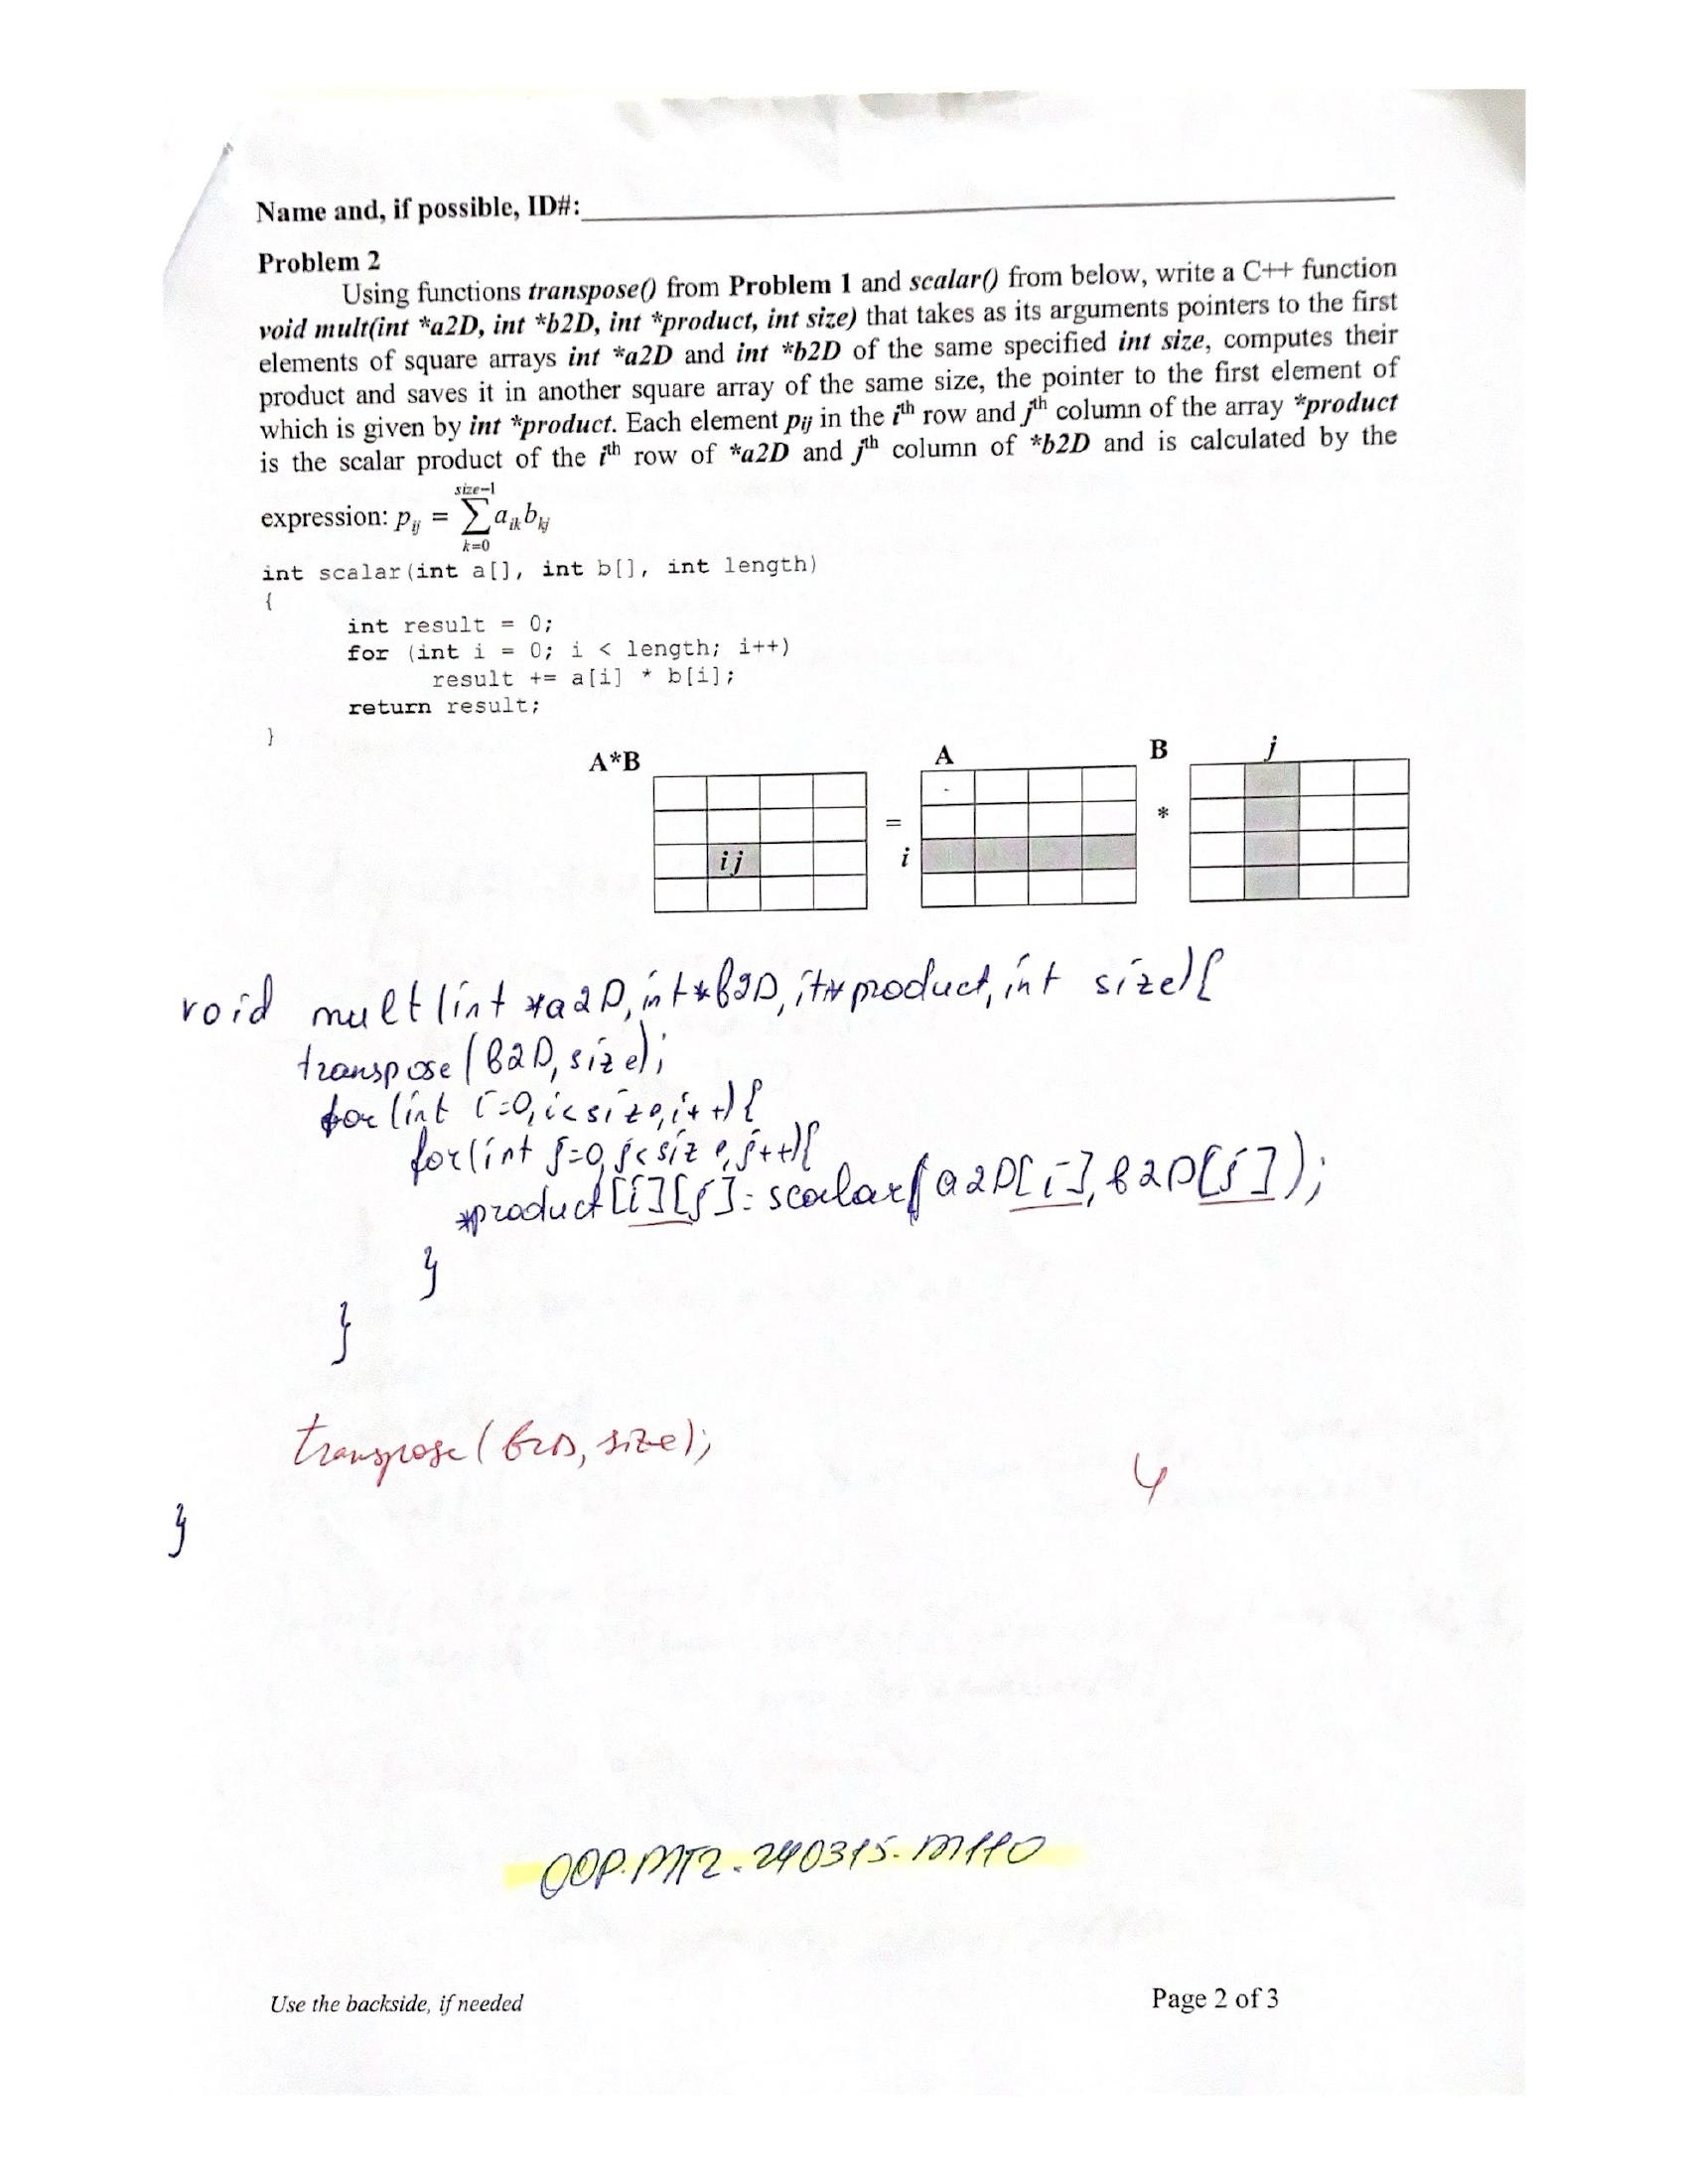 Name and, if possible, ID#:
Problem 2
Using functions transpose() from Problem 1 and scalar() from below, write a C++ function
void mult(int *a2D, int *b2D, int *product, int size) that takes as its arguments pointers to the first
elements of square arrays int *a2D and int *b2D of the same specified int size, computes their
product and saves it in another square array of the same size, the pointer to the first element of
which is given by int *product. Each element pij in the ith row and jth column of the array *product
is the scalar product of the ith row of *a2D and jth column of *b2D and is calculated by the
size-1
expression: pij = ∑ aik bkj
k=0
int scalar(int a[], int b[], int length)
{
int result = 0;
for (int i = 0; i < length; i++)
result += a[i] * b[i];
return result;
}
A*B A B j
= *
i j i
void mult(int *a2D, int *b2D, it* product, int size){
transpose(b2D, size);
for(int i=0, i<size, i++){
for(int j=0, j<size, j++){
*product[i][j]=scalar(a2D[i], b2D[j]);
}
}
transpose(b2D, size);
4
}
OOP.MT2.240315.M110
Use the backside, if needed Page 2 of 3